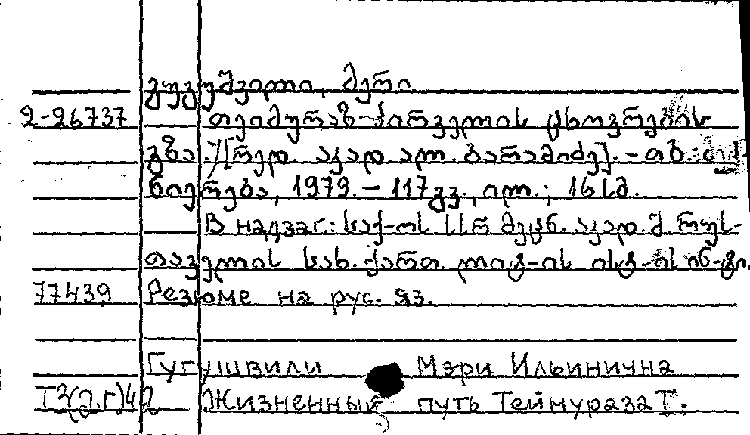 გუგუშვილი, მერი
2-26737 თეიმურაზ პირველის ცხოვრების
გზა /[რედ. აკად. ალ. ბარამიძე]. - თბ.
ნიერება, 1979. - 117გვ., ილ.; 16სმ.
В надзаг.: საქ-ოს სსრ მეცნ. აკად. შ. რუს-
თაველის სახ. ქართ. ლიტ-ის ისტ-ის ინ-ტი.
77439 Резюме на рус. яз.
Гугушвили Мэри Ильинична
Т3(2Г)42 Жизненный путь Теймураза I.